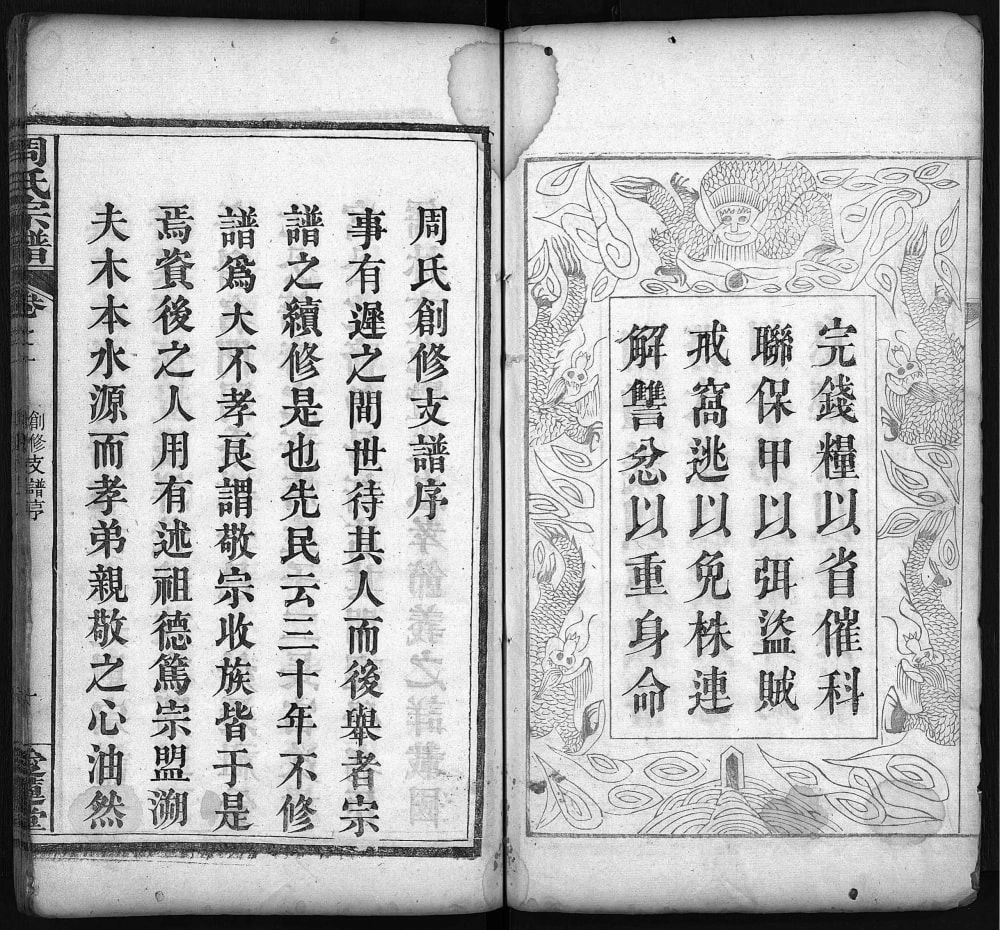 完錢糧以省催科
聯保甲以弭盜賊
戒窩逃以免株連
解讐忿以重身命
周氏創修支譜序
事有遲之間世待其人而後舉者宗
譜之續修是也先民云三十年不修
譜爲大不孝良謂敬宗收族皆于是
焉資後之人用有述祖德篤宗盟溯
夫木本水源而孝弟親敬之心油然
周氏宗譜
卷
創修支譜序
堂